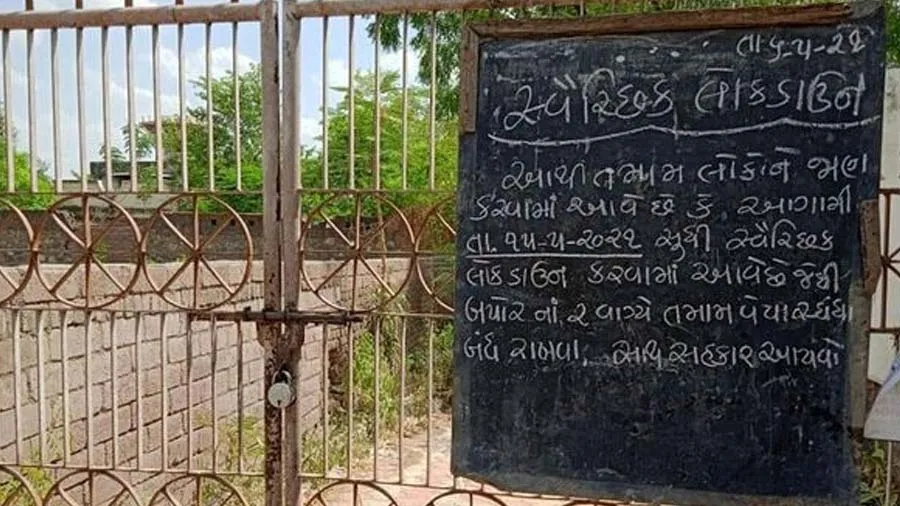 તા ૬-૫-૨૧
સ્વૈચ્છિક લોકડાઉન
આથી તમામ લોકોને જાણ
કરવામાં આવે છે કે આગામી
તા. ૧૫-૫-૨૦૨૧ સુધી સ્વૈચ્છિક
લોકડાઉન કરવામાં આવેછે જેથી
બપોર નાં ૨ વાગ્યે તમામ વેપાર ધંધા
બંધ રાખવા. સાથ સહકાર આપવો